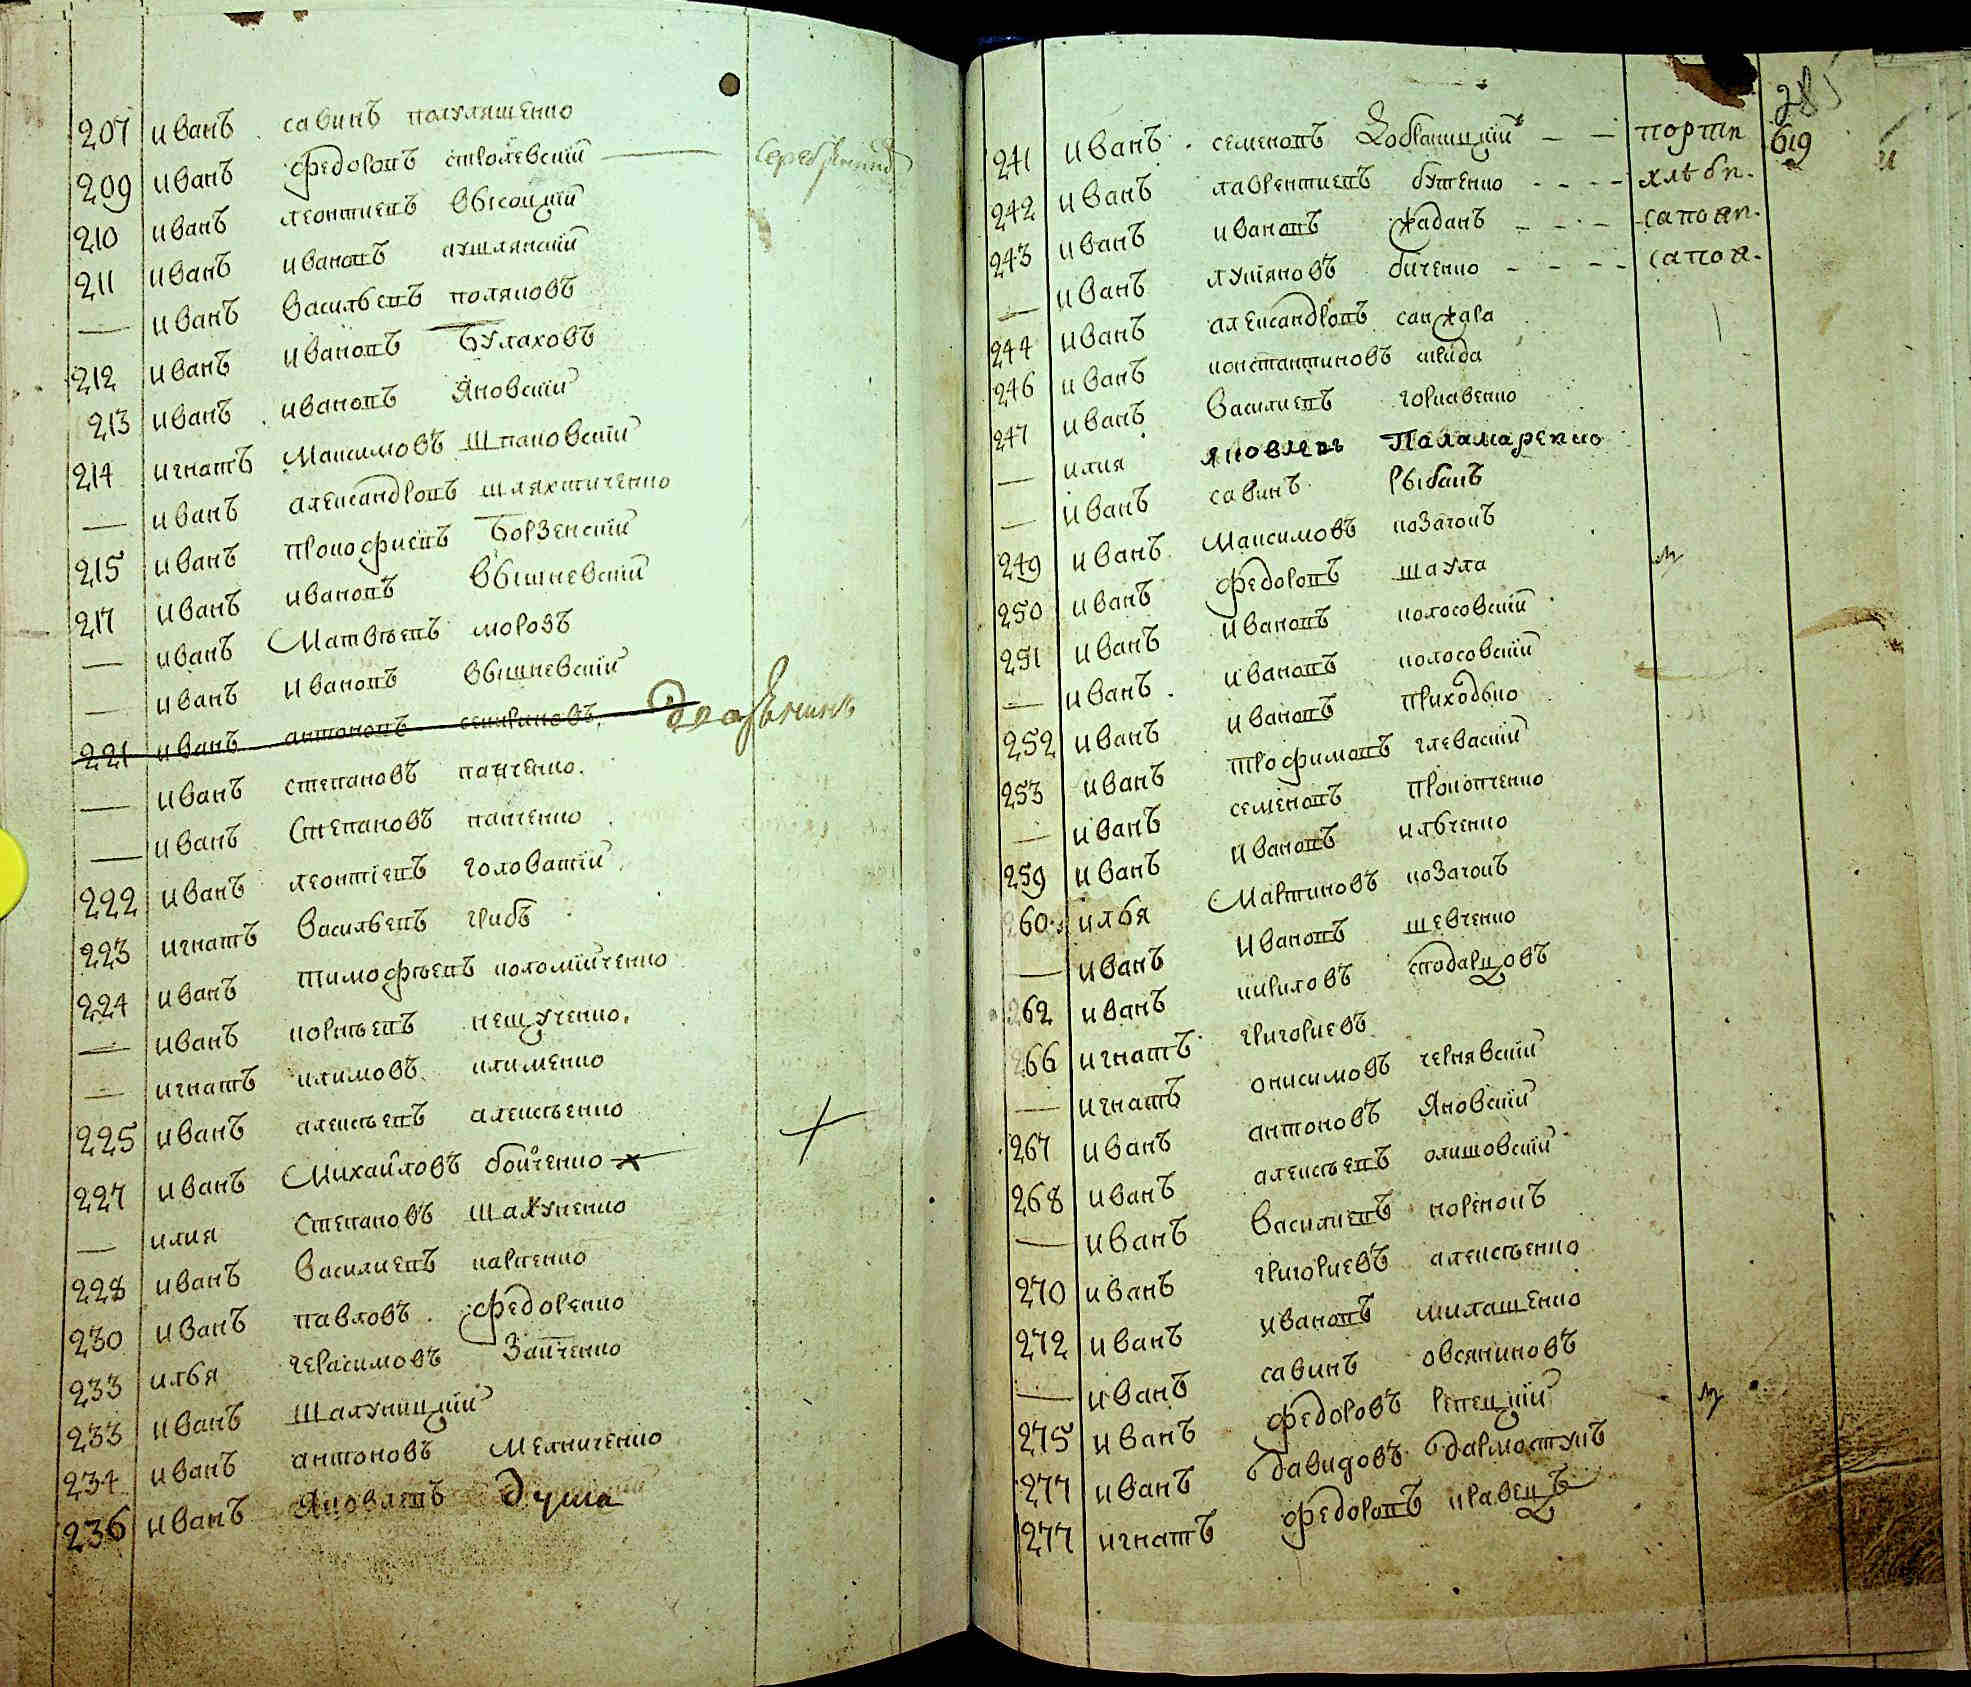 207 иванъ савинъ полуляшенко
209 иванъ федоровъ стролевский серебряникъ
210 иванъ леонтиевъ высоцкий
211 иванъ ивановъ лушлянский
— иванъ васильевъ поляковъ
212 иванъ ивановъ Булаховъ
213 иванъ ивановъ Яновский
214 игнатъ Максимовъ Шпаковский
— иванъ александровъ шляхтиченко
215 иванъ прокофиевъ Борзенский
217 иванъ ивановъ вышневский
— иванъ Матвѣевъ морозъ
— иванъ Ивановъ вышневский
221 иванъ антоновъ
— иванъ степановъ панченко
— иванъ Степановъ панченко
222 иванъ леонтиевъ головатий
223 игнатъ васильевъ грибъ
224 иванъ тимофѣевъ коломийченко
— иванъ корнѣевъ кещученко
— игнатъ климовъ клименко
225 иванъ алексѣевъ алексѣенко
227 иванъ Михайловъ бойченко
— илия Степановъ шалуненко
228 иванъ василиевъ карпенко
230 иванъ павловъ федоренко
233 илья герасимовъ Зайченко
233 иванъ шалуницкий
234 иванъ антоновъ мелниченко
236 иванъ Яковлевъ Душа
285
619
241 иванъ семеновъ Кобланицкий — — портн
242 иванъ лаврентиевъ бутенко - - - хлѣбн.
243 иванъ ивановъ жаданъ - - - сапожн.
— иванъ лукяновъ биченко - - - сапож.
244 иванъ александровъ санжара
246 иванъ константиновъ шкида
247 иванъ василиевъ горкавенко
— илия яковлевъ Паламаренко
— иванъ савинъ рыбакъ
249 иванъ Максимовъ козачокъ
250 иванъ федоровъ шаула
251 иванъ ивановъ колосовский
— иванъ ивановъ колосовский
252 иванъ ивановъ приходько
253 иванъ трофимовъ глеваский
— иванъ семеновъ прокопченко
259 иванъ ивановъ ильченко
260 илья Мартиновъ козачокъ
— иванъ ивановъ шевченко
262 иванъ кириловъ сподарцовъ
266 игнатъ григориевъ
— игнатъ онисимовъ чернявский
267 иванъ антоновъ Яновский
268 иванъ алексѣевъ олишовский
— иванъ василиевъ коренокъ
270 иванъ григориевъ алексѣенко
272 иванъ ивановъ милашенко
— иванъ савинъ овсяниковъ
275 иванъ федоровъ репецкий
277 иванъ давидовъ дармостукъ
277 игнатъ федоровъ кравецъ